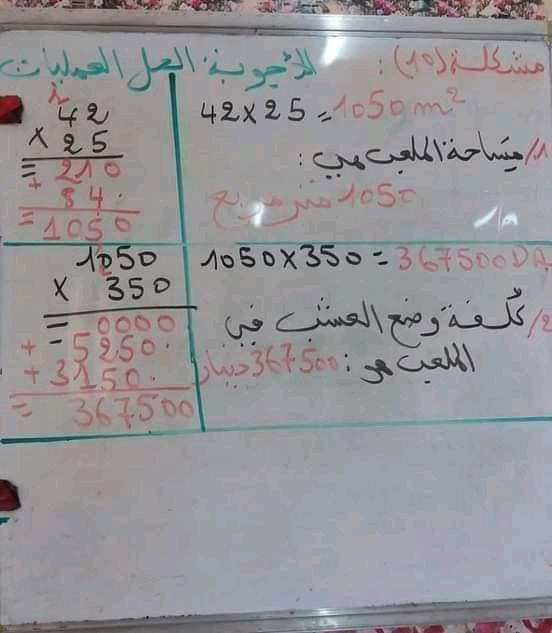 مشكلة (10): الأجوبة الحل العمليات
42×25=1050m²
1/ مَساحة الملعب هي:
1050 متر مربع
2
42
× 25
= 210
+ 84.
= 1050
1050×350=367500DA
2/ كُلفة وضع العشب في
الملعب هو: 367500 دينار
1050
2
× 350
= 0000
+ 5250.
+ 3150.
= 367500